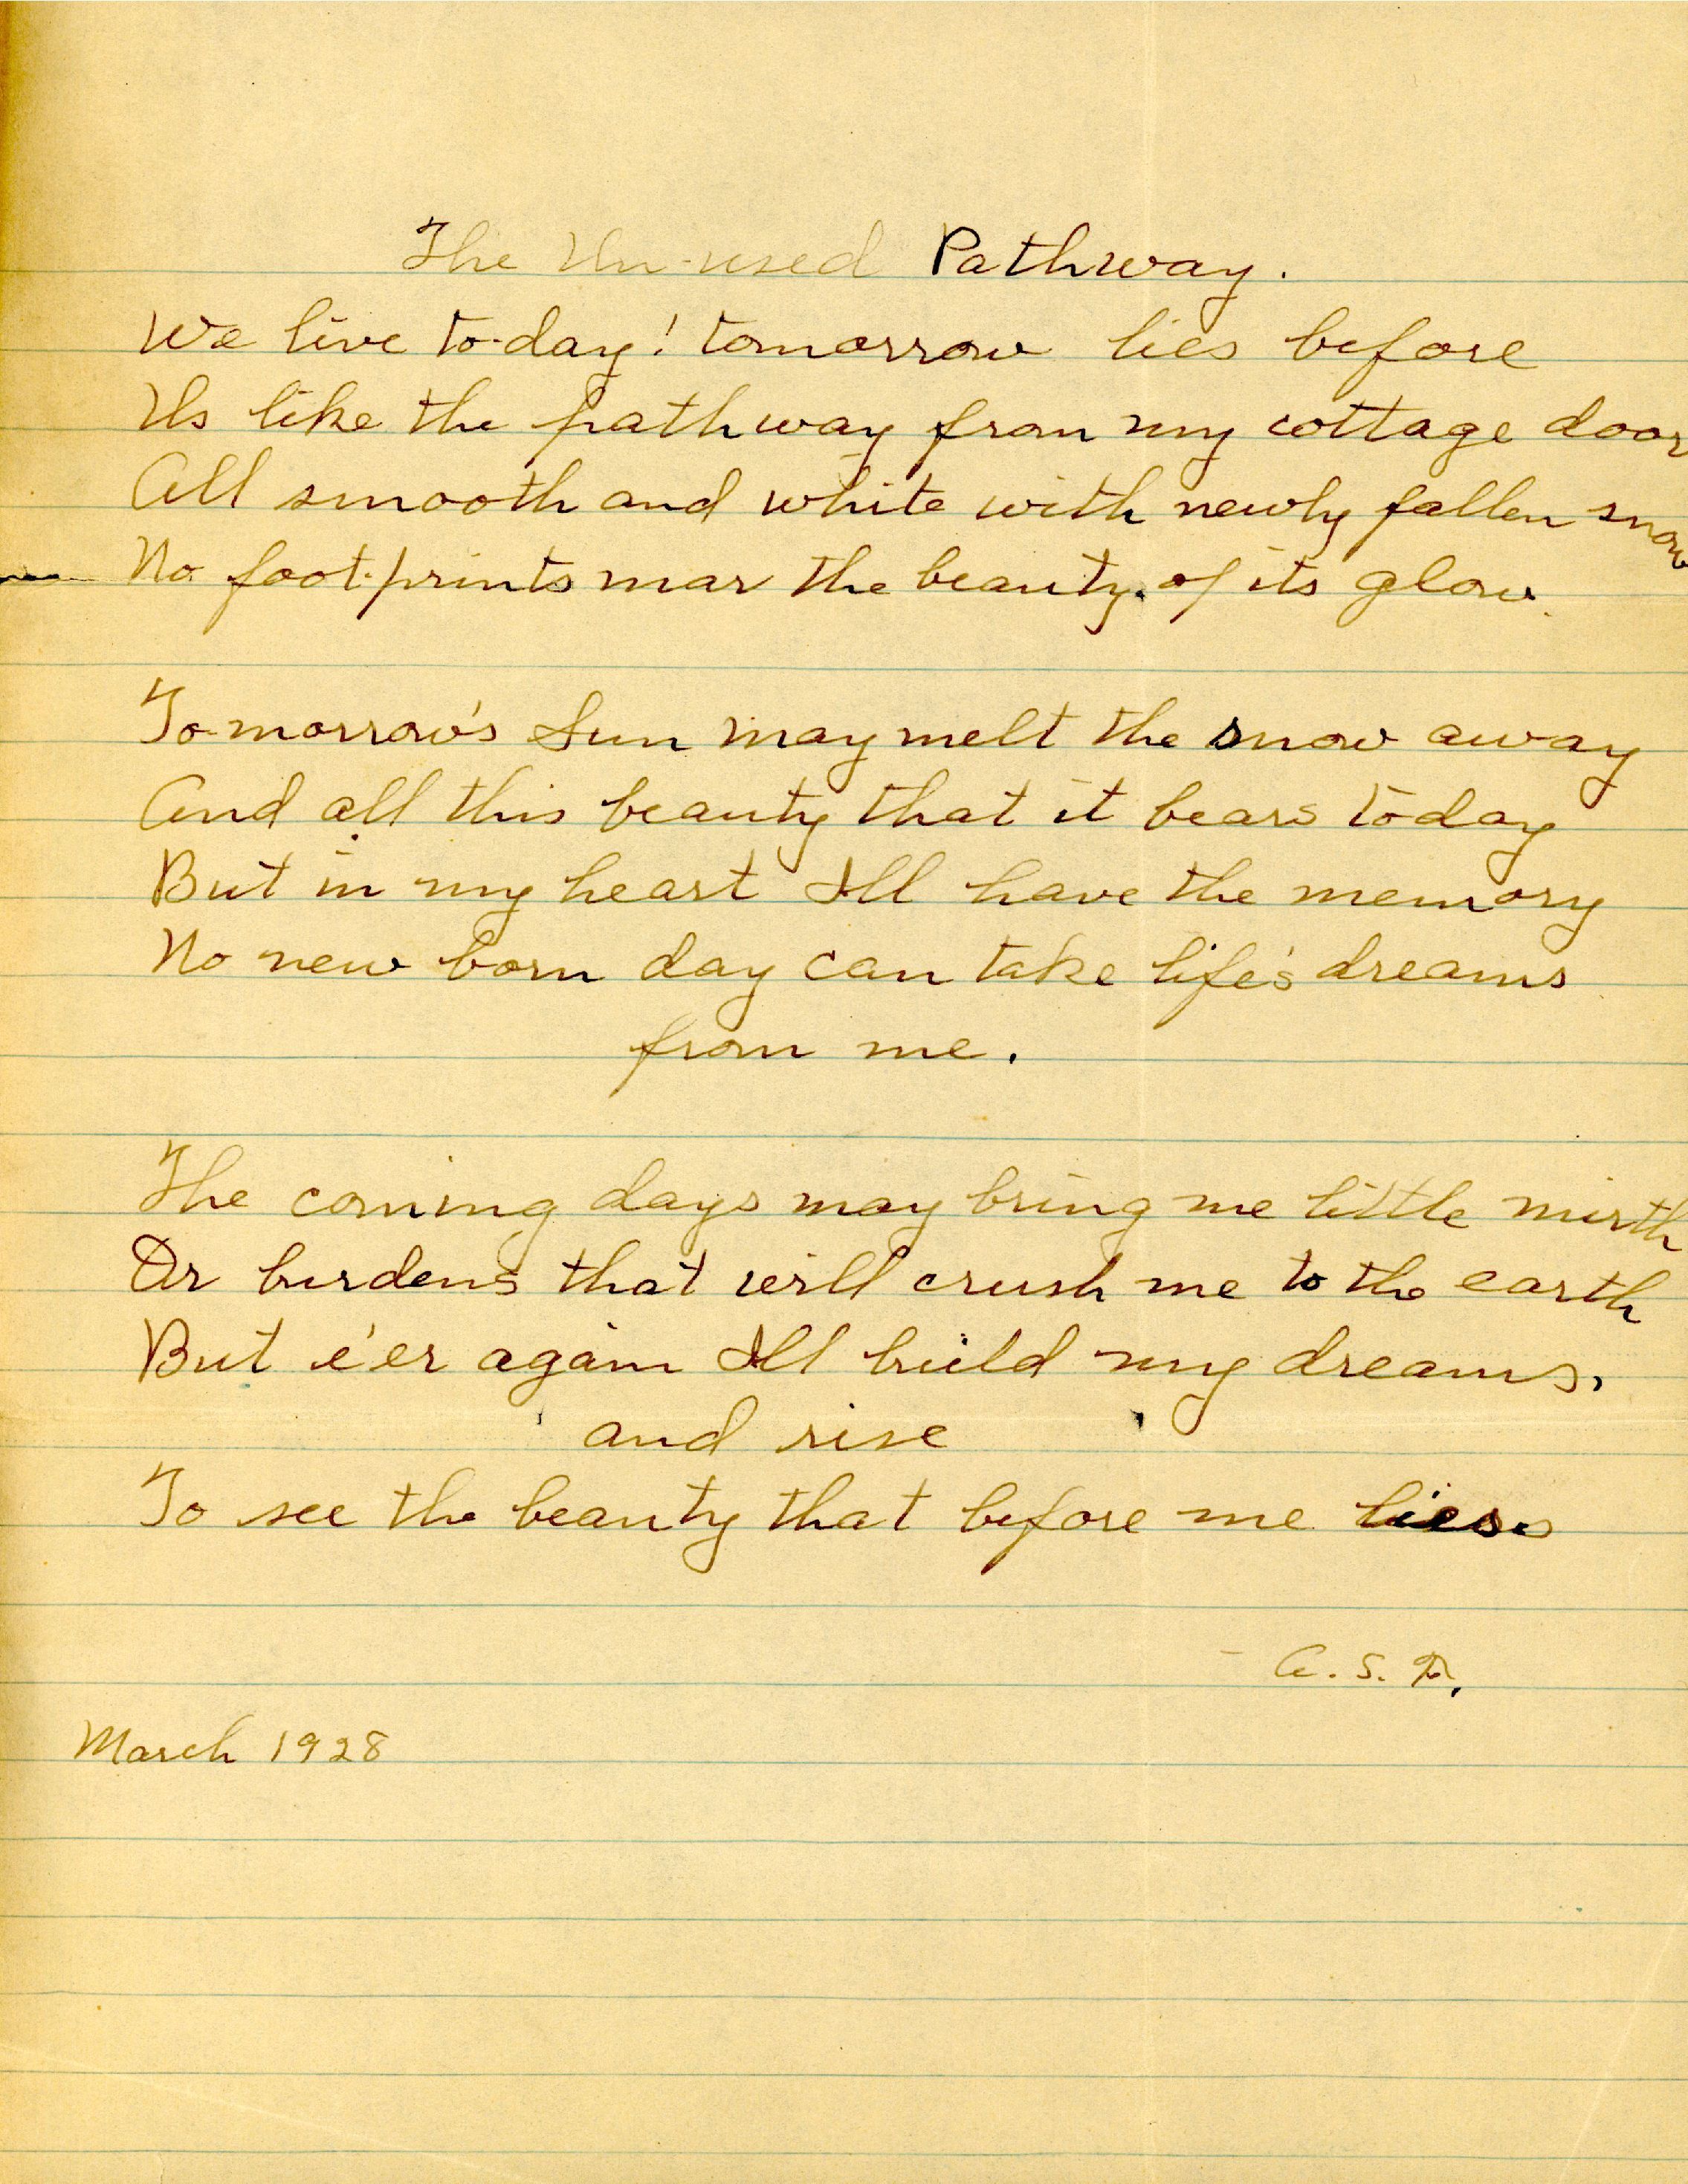 The Un-used Pathway.
We live to-day! tomorrow lies before
Us like the pathway from my cottage door
All smooth and white with newly fallen snow
No foot-prints mar the beauty of its glow.
To-morrow's Sun may melt the snow away
And all this beauty that it bears today
But in my heart I'll have the memory
No new born day can take life's dreams
from me.
The coming days may bring me little mirth
Or burdens that will crush me to the earth
But e'er again I'll build my dreams,
and rise
To see the beauty that before me lies
- A. S.
March 1928